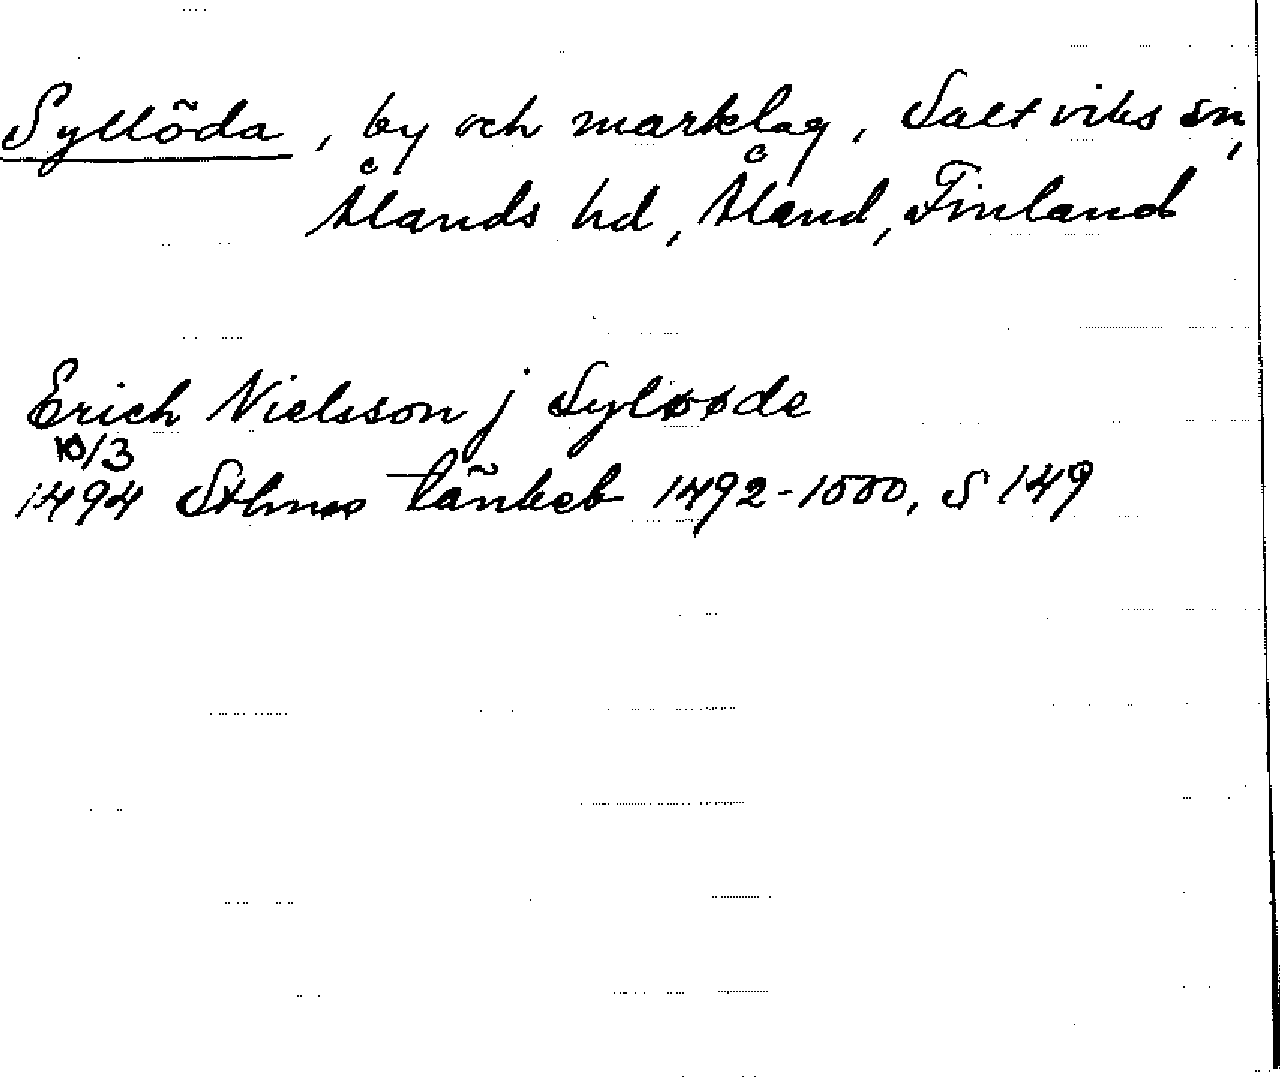 Syllöda, by och marklag, Saltviks sn,
Ålands hd, Åland, Finland
Erich Nielsson j Syløøde
10/3
1494 Sthms tänkeb 1492-1500, s 149